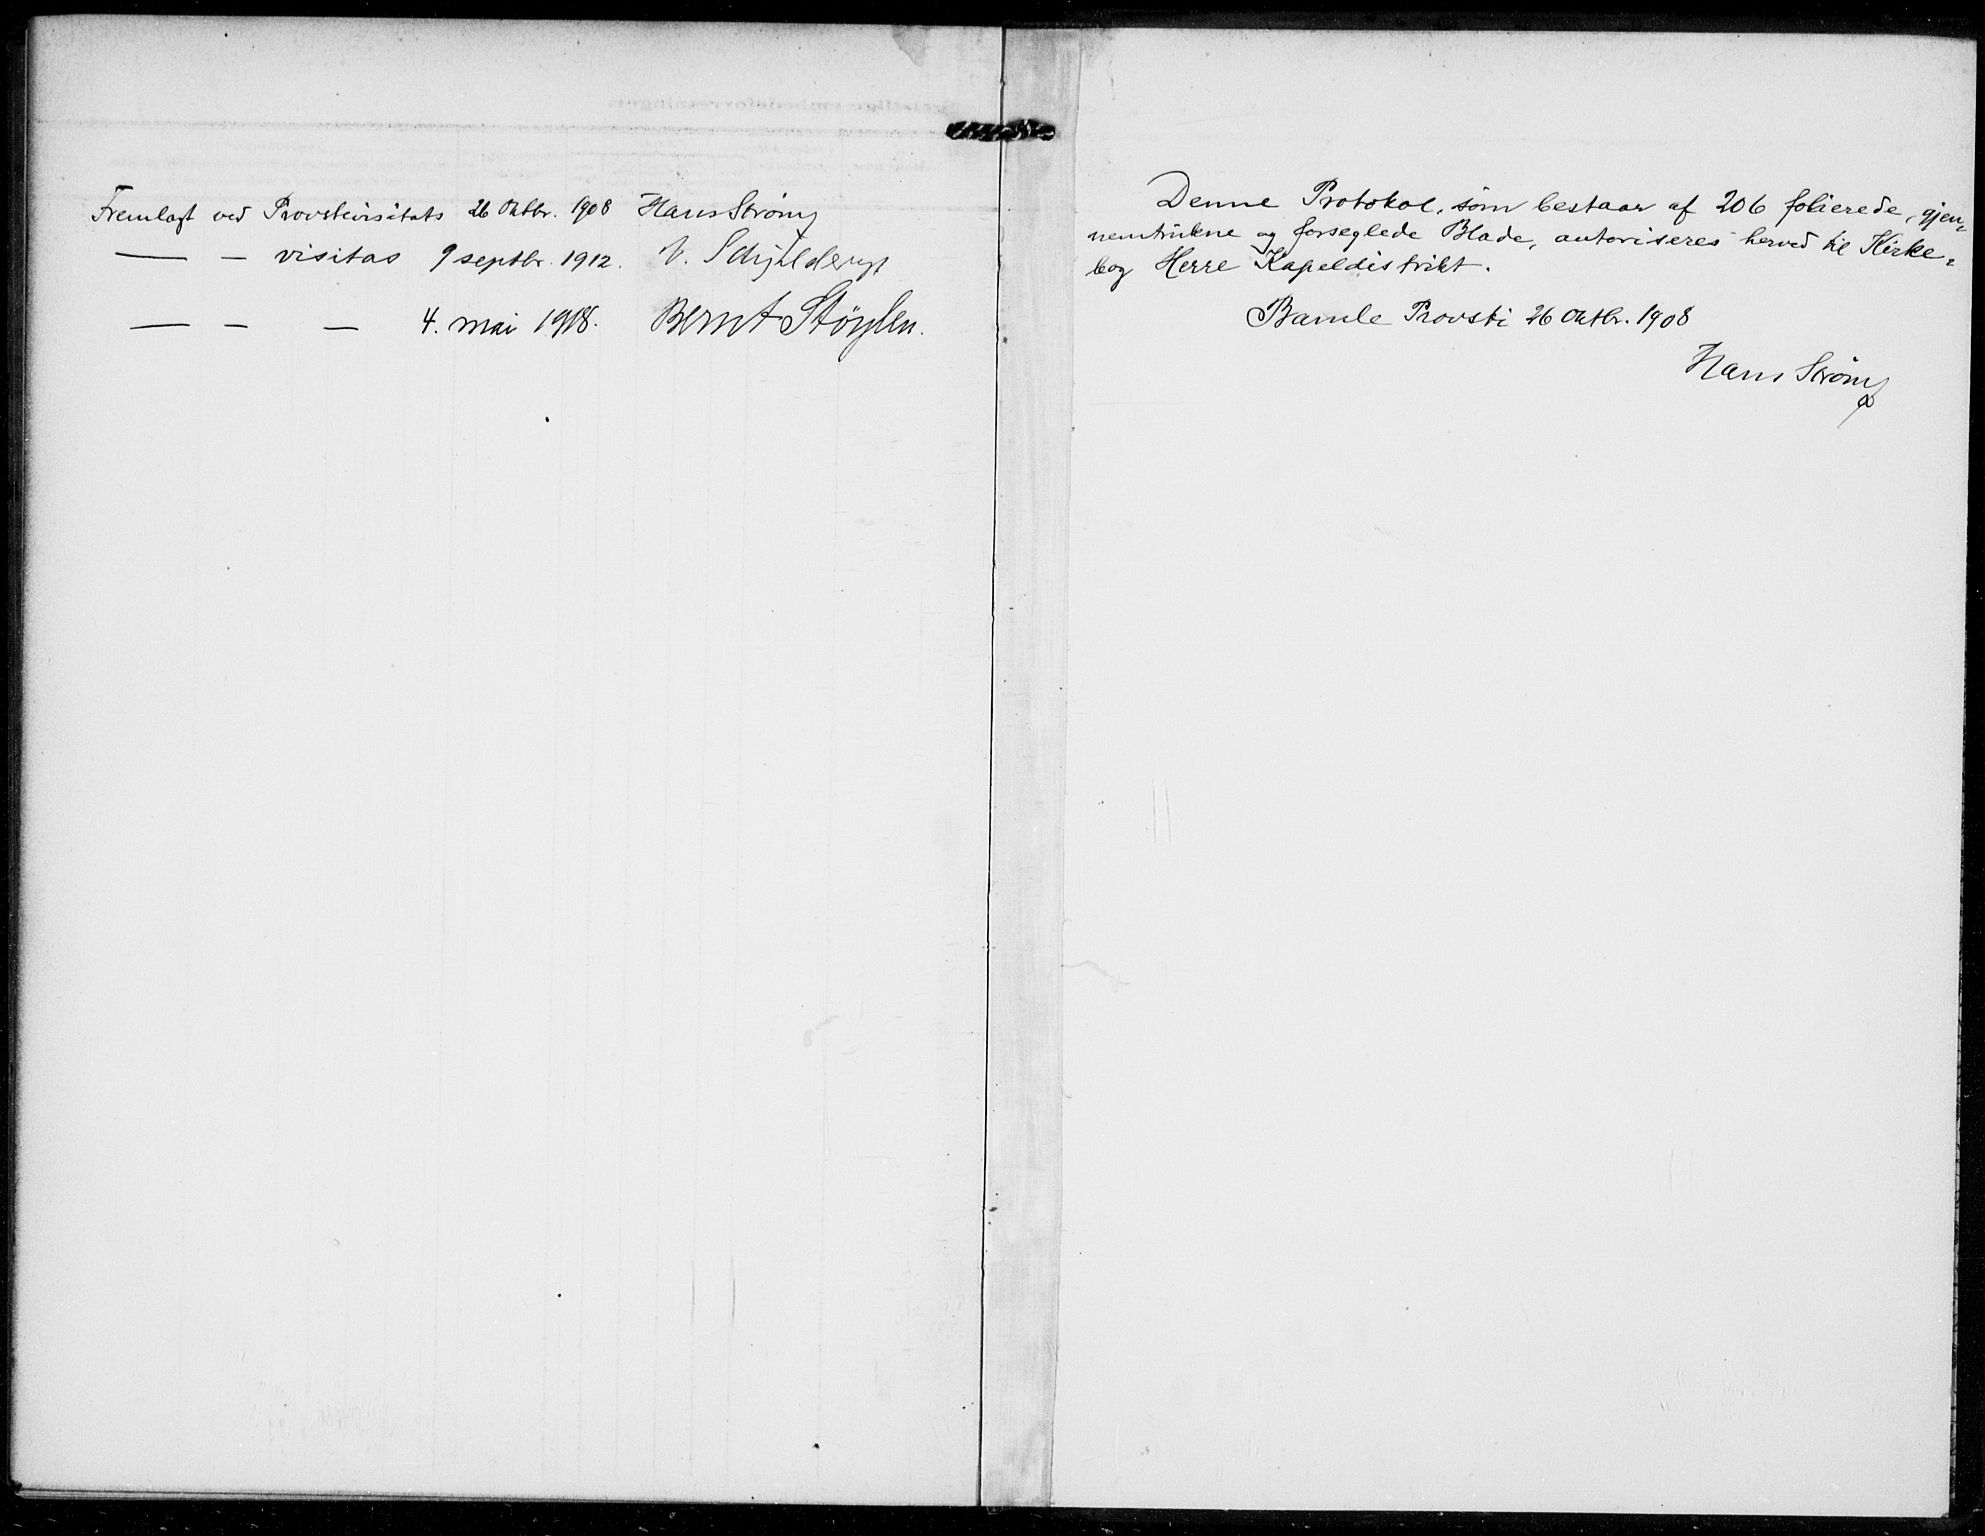 Fremlagt ved Provstevisitats 26 Oktbr. 1908 Hans Strøm
— — visitas 9 septbr. 1912. V. Schjeldrup
— — — 4. mai 1918. Bernt Støylen.
Denne Protokol, som bestaar af 206 folierede, gjen-
nemtrukne og forseglede Blade, autoriseres herved til Kirke-
bog Herre Kapeldistrikt.
Bamle Provsti 26 Oktbr. 1908
Hans Strøm